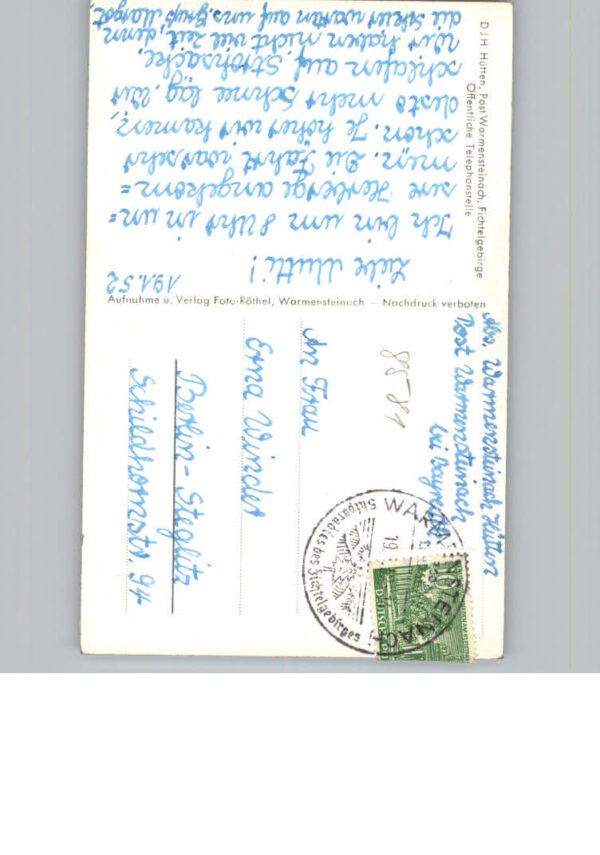 DJH Hütten, Post Warmensteinach, Fichtelgebirge
Öffentliche Telephonstelle
19.1.52
Liebe Mutti!
Ich bin um 8 Uhr in un=
sere Herberge angekom=
men. Die Fahrt war sehr
schön. Je höher wir kamen,
desto mehr Schnee lag. Wir
schlafen auf Strohsäcke.
Wir haben nicht viel Zeit, denn
die Skier warten auf uns. Gruß Margot.
Aufnahme u. Verlag Foto-Röthel, Warmensteinach – Nachdruck verboten
Abs. Warmensteinach Hütten
Post Warmensteinach
bei Bayreuth
8581
An Frau
Erna Winder
Berlin - Steglitz
Schildhornstr. 94
WARMENSTEINACH
Skiparadies des Fichtelgebirges
19